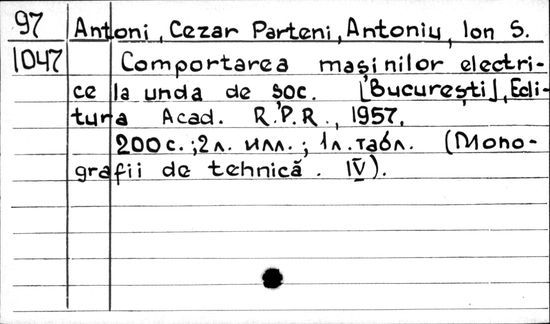 97
1047
Antoni, Cezar Parteni, Antoniu, Ion S.
Comportarea mașinilor electri-
ce la unda de șoc. [București], Edi-
tura Acad. R.P.R., 1957.
200 с.; 2 л. илл.; 1 л. табл. (Mono-
grafii de tehnică. IV).